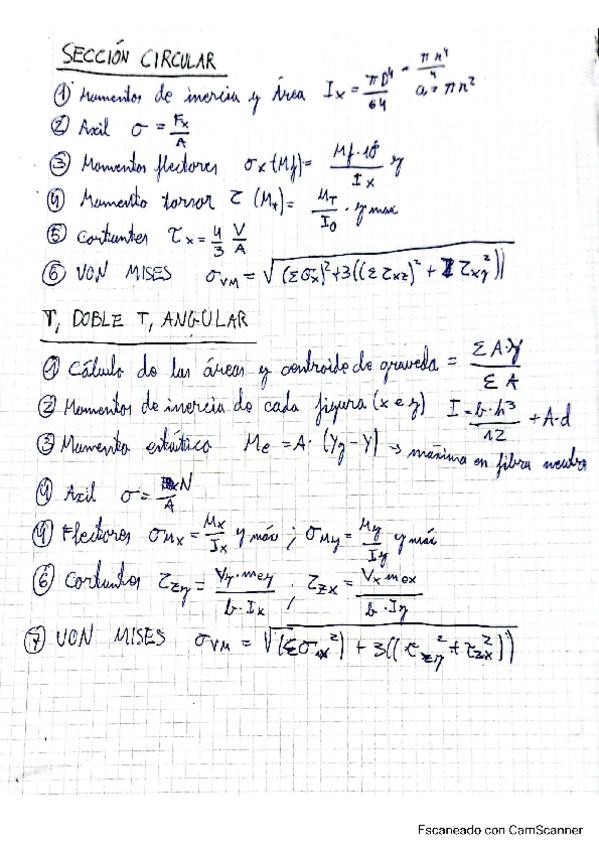 SECCIÓN CIRCULAR
① Momentos de inercia y Área Ix = πD⁴/64 = πr⁴/4 a = πr²
② Axil σ = Fx/A
③ Momentos flectores σx(Mf) = Mf·10³/Ix y
④ Momento torsor τ (Mx) = MT/I0 · y max
⑤ Cortantes τx = 4/3 V/A
⑥ VON MISES σVM = √((Σσx)² + 3((Στxz)² + Στxy²))
T, DOBLE T, ANGULAR
① Cálculo de las áreas y centroide de graveda = ΣA·y/ΣA
② Momentos de inercia de cada figura (x e y) I = b·h³/12 + A·d
③ Momento estático Me = A· (Yg - Y) → máxima en fibra neutra
④ Axil σ = N/A
④ Flectores σMx = Mx/Ix y máx ; σMy = My/Iy y máx
⑥ Cortantes τzy = Vy·mey/b·Ix ; τzx = Vx mex/b·Iy
⑦ VON MISES σVM = √((Σσx²) + 3((τzy² + τzx²))
Escaneado con CamScanner